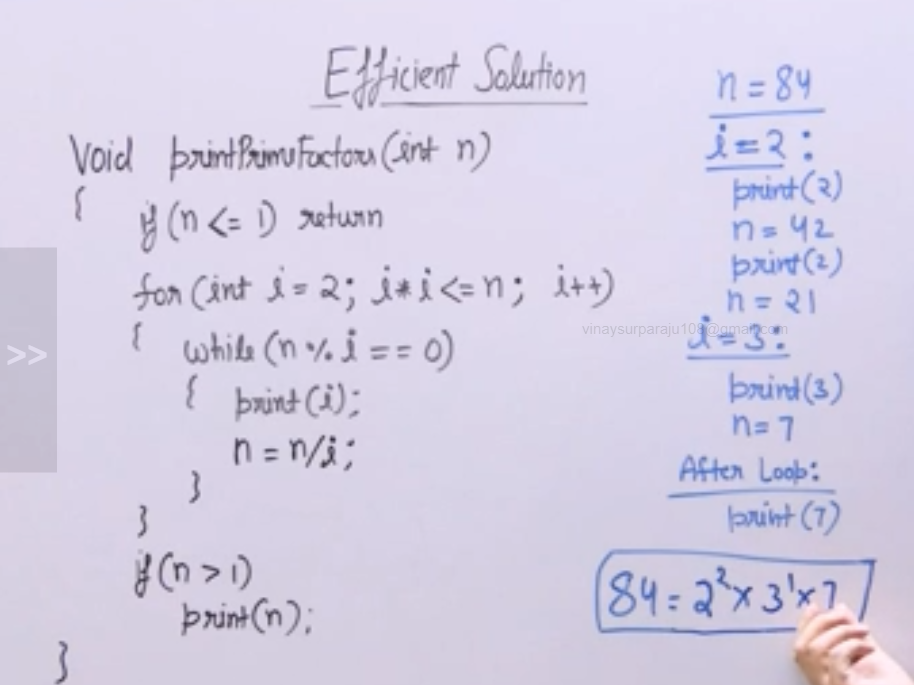 Efficient Solution
Void printPrimeFactors(int n)
{
if (n <= 1) return
for (int i = 2; i*i <= n; i++)
{
while (n % i == 0)
{
print(i);
n = n/i;
}
}
if (n > 1)
print(n);
}
n = 84
i = 2 :
print(2)
n = 42
print(2)
n = 21
vinaysurparaju108@gmail.com
i = 3 :
print(3)
n = 7
After Loop:
print(7)
84 = 2² × 3¹ × 7
>>